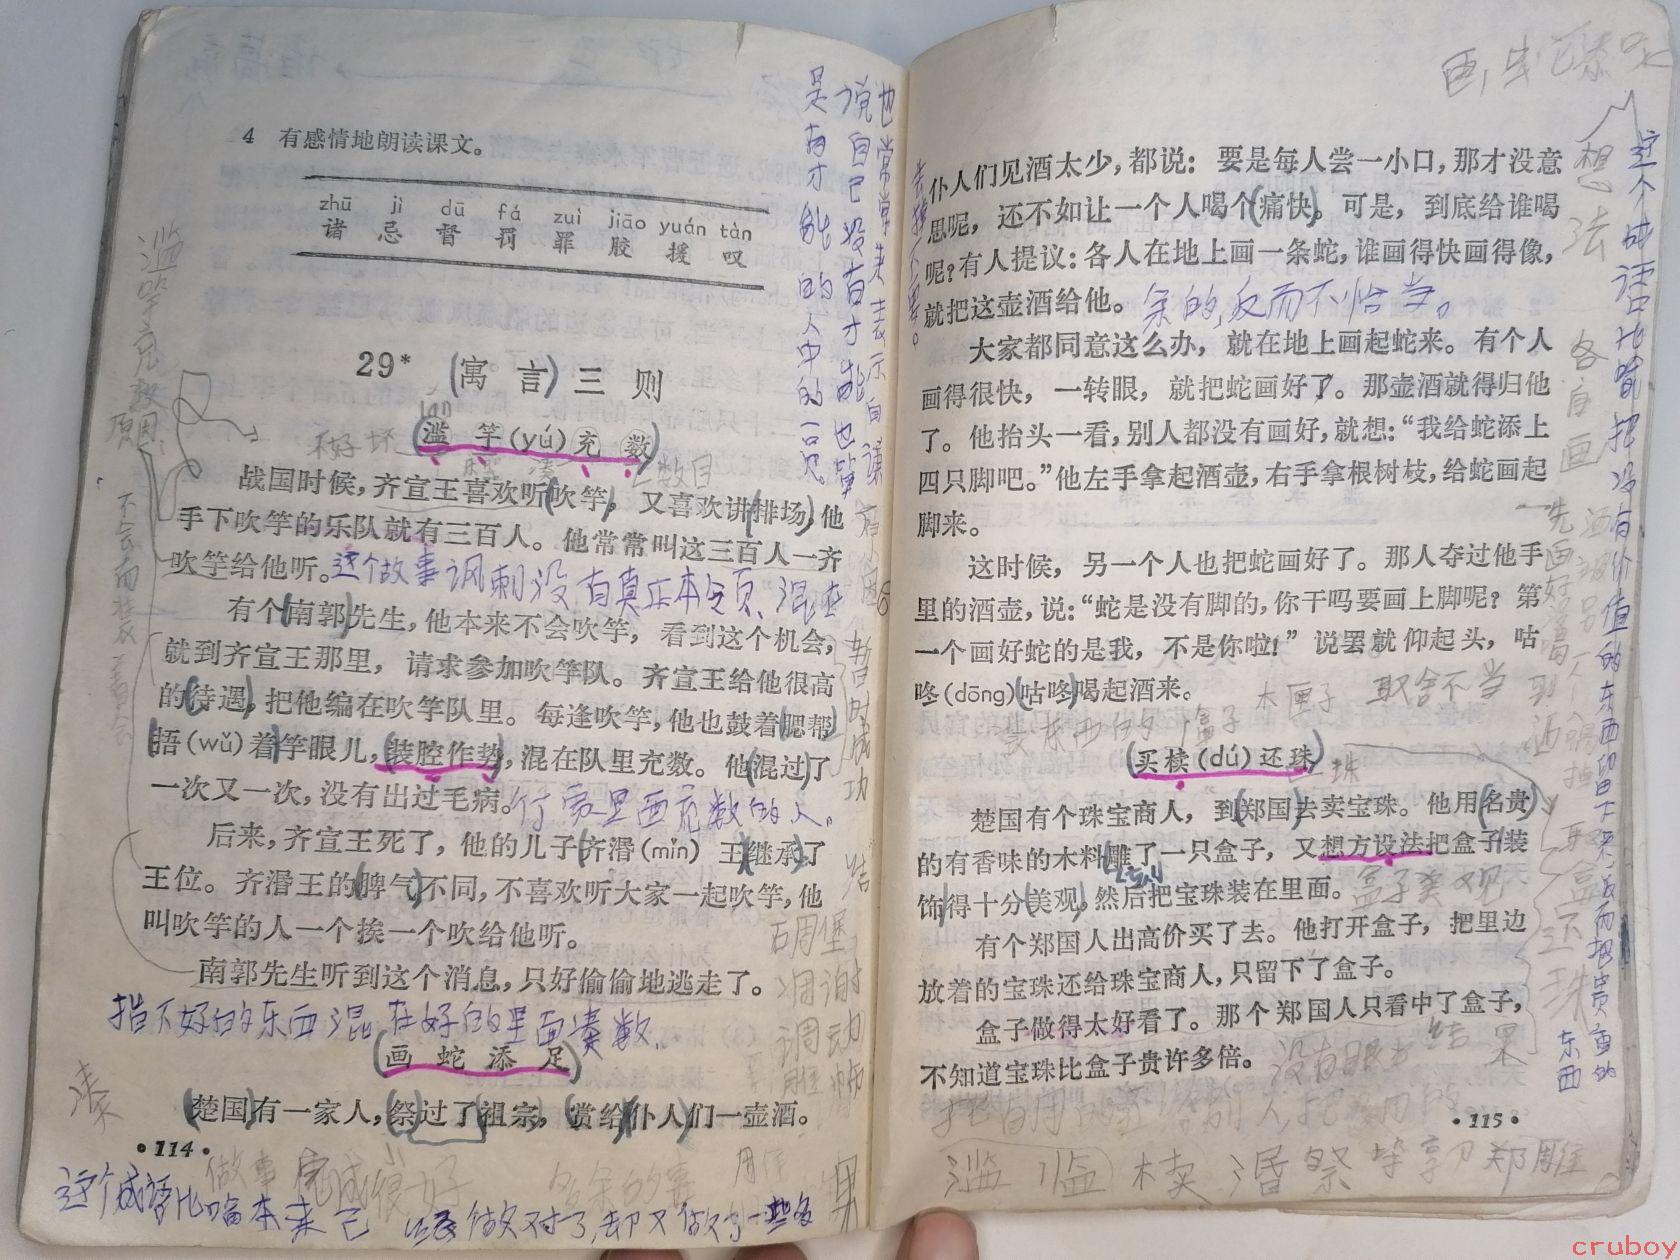 4 有感情地朗读课文。
zhū jì dū fá zuì jiāo yuán tàn
诸 忌 督 罚 罪 胶 援 叹
29* 寓言三则
滥竽(yú)充数
战国时候，齐宣王喜欢听吹竽，又喜欢讲排场，他
手下吹竽的乐队就有三百人。他常常叫这三百人一齐
吹竽给他听。
这个故事讽刺没有真正本领、混在
有个南郭先生，他本来不会吹竽，看到这个机会，
就到齐宣王那里，请求参加吹竽队。齐宣王给他很高
的待遇，把他编在吹竽队里。每逢吹竽，他也鼓着腮帮
捂(wǔ)着竽眼儿，装腔作势，混在队里充数。他混过了
一次又一次，没有出过毛病。
行家里面充数的人。
后来，齐宣王死了，他的儿子齐湣(mǐn)王继承了
王位。齐湣王的脾气不同，不喜欢听大家一起吹竽，他
叫吹竽的人一个挨一个吹给他听。
南郭先生听到这个消息，只好偷偷地逃走了。
指不好的东西混在好的里面凑数。
画蛇添足
楚国有一家人，祭过了祖宗，赏给仆人们一壶酒。
·114·
这个成语比喻本来已经做对了，却又做了一些多
也常常来表示自谦
说自己没有才能也算
是有才能的人中的一员。
làn
不好 坏
数目
滥竽充数
暂时成功
结
果
石周堡
凑
仆人们见酒太少，都说：要是每人尝一小口，那才没意
思呢，还不如让一个人喝个痛快。可是，到底给谁喝
呢？有人提议：各人在地上画一条蛇，谁画得快画得像，
就把这壶酒给他。
余的，反而不恰当。
大家都同意这么办，就在地上画起蛇来。有个人
画得很快，一转眼，就把蛇画好了。那壶酒就得归他
了。他抬头一看，别人都没有画好，就想：“我给蛇添上
四只脚吧。”他左手拿起酒壶，右手拿根树枝，给蛇画起
脚来。
这时候，另一个人也把蛇画好了。那人夺过他手
里的酒壶，说：“蛇是没有脚的，你干吗要画上脚呢？第
一个画好蛇的是我，不是你啦！”说罢就仰起头，咕
咚(dōng)咕咚喝起酒来。
木匣子 取舍不当
盒子
买椟(dú)还珠
珠
楚国有个珠宝商人，到郑国去卖宝珠。他用名贵
的有香味的木料雕了一只盒子，又想方设法把盒子装
饰得十分美观，然后把宝珠装在里面。
盒子美观
有个郑国人出高价买了去。他打开盒子，把里边
放着的宝珠还给珠宝商人，只留下了盒子。
盒子做得太好看了。那个郑国人只看中了盒子，
不知道宝珠比盒子贵许多倍。
没有眼光
结果
·115·
滥 临 椟 湣 祭 郑 雕
想法
各自画
这个成语比喻把没有价值的东西留下来反而把贵重的
东西
cruboy